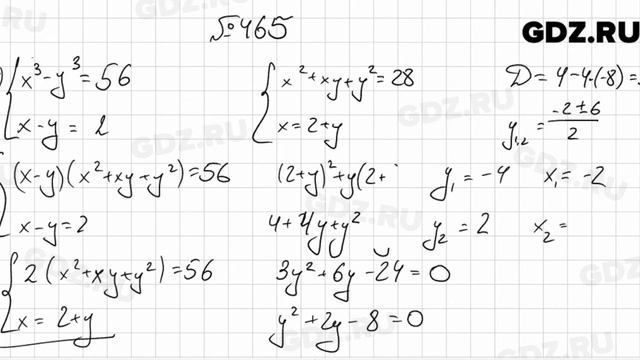 №465
GDZ.RU
x³-y³=56
x-y=2
(x-y)(x²+xy+y²)=56
x-y=2
2(x²+xy+y²)=56
x=2+y
x²+xy+y²=28
x=2+y
(2+y)²+y(2+
4+4y+y²
3y²+6y-24=0
y²+2y-8=0
D=4-4·(-8)=
y₁,₂=(-2±6)/2
y₁=-4 x₁=-2
y₂=2 x₂=